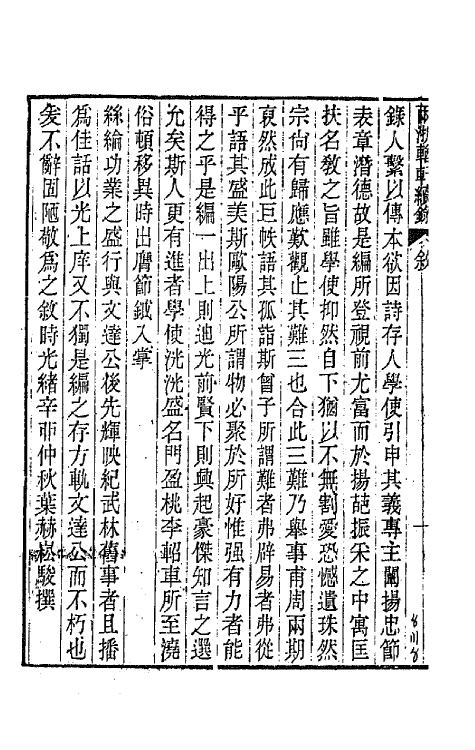 兩浙輶軒續錄 敘
錄人繫以傳本欲因詩存人學使引申其義專主闡揚忠節
表章潛德故是編所登視前尤富而於揚葩振采之中寓匡
扶名敎之旨雖學使抑然自下猶以不無割愛恐憾遺珠然
宗尙有歸應歎觀止其難三也合此三難乃舉事甫周兩期
裒然成此巨帙語其孤詣斯曾子所謂難者弗辟易者弗從
乎語其盛美斯歐陽公所謂物必聚於所好惟强有力者能
得之乎是編一出上則迪光前賢下則興起豪傑知言之選
允矣斯人更有進者學使洸洸盛名門盈桃李軺車所至澆
俗頓移異時出膺節鉞入掌
絲綸功業之盛行與文達公後先輝映紀武林舊事者且播
爲佳話以光上庠又不獨是編之存方軌文達公而不朽也
爰不辭固陋敬爲之敘時光緒辛卯仲秋葉赫崧駿撰